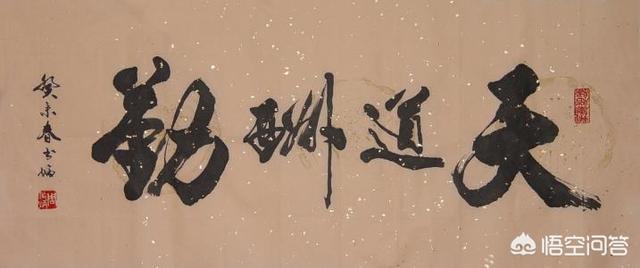 天道酬勤
癸未春书
悟空问答